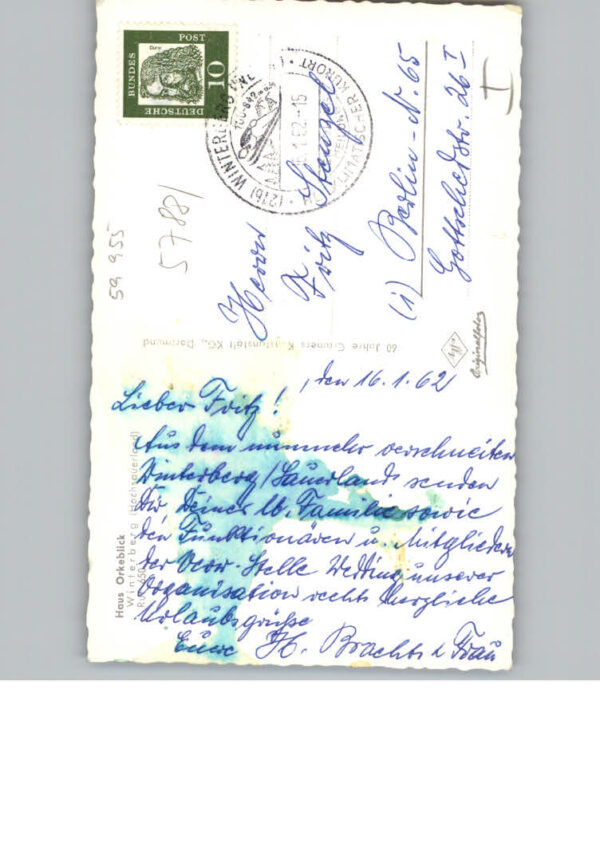 DEUTSCHE
BUNDES
POST
10
(21b) WINTERBERG
16.1.62-15
HEILKLIMATISCHER KURORT
Herrn
Fritz Stenzel
(1) Berlin-N. 65
Gottschedstr. 26 I
I
59 955
57881
60 Jahre Cramers Kunstanstalt KG., Dortmund
Originalfoto
Haus Orkeblick
Winterberg (Hochsauerland)
, den 16.1.62
Lieber Fritz!
Aus dem nunmehr verschneiten
Winterberg/Sauerland senden
Dir, Deiner lb. Familie sowie
den Funktionären u. Mitgliedern
der Verw. Stelle Wedding unserer
Organisation recht herzliche
Urlaubsgrüße
Euer H. Bracht u. Frau